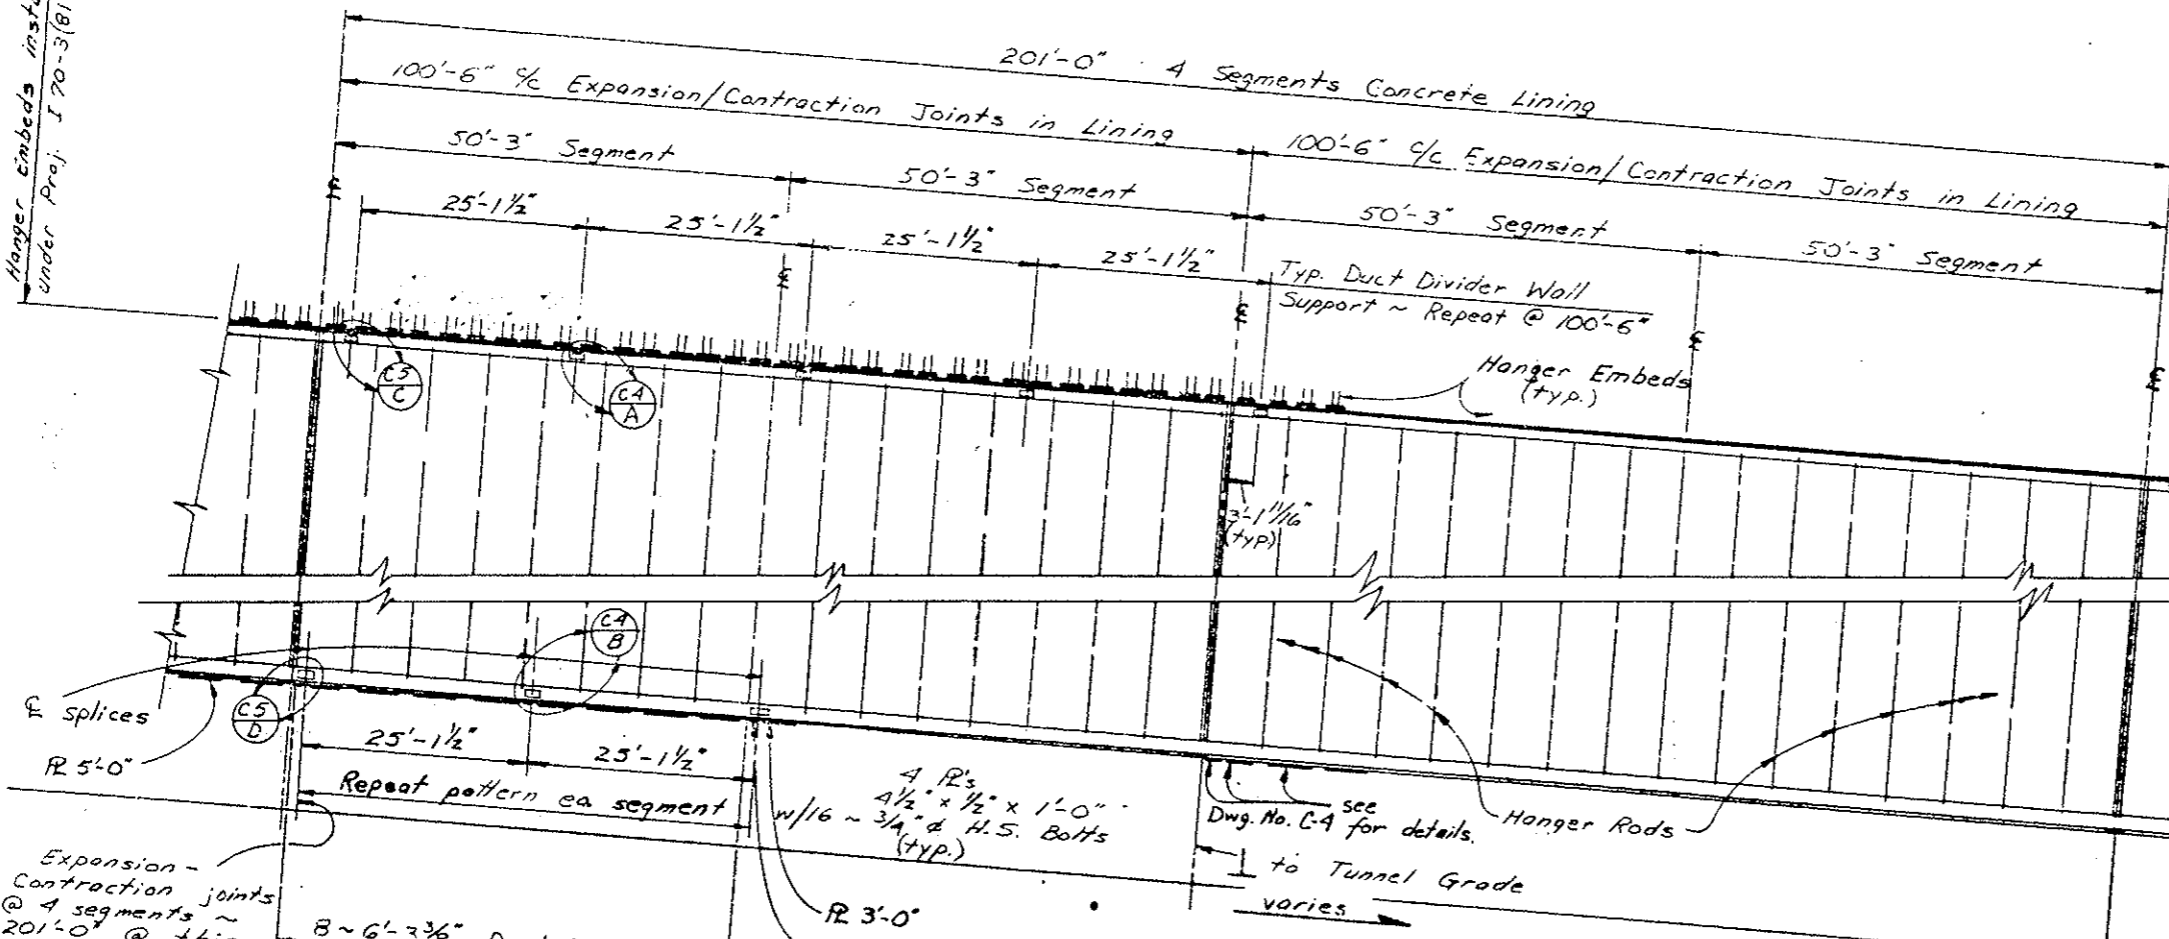 Hanger Embeds
under Proj. I 70-3(81
201'-0" 4 Segments Concrete Lining
100'-6" c/c Expansion/Contraction Joints in Lining
100'-6" c/c Expansion/Contraction Joints in Lining
50'-3" Segment
50'-3" Segment
50'-3" Segment
50'-3" Segment
25'-1½"
25'-1½"
25'-1½"
25'-1½"
Typ. Duct Divider Wall
Support ~ Repeat @ 100'-6"
Hanger Embeds
(typ.)
C5
C
C4
A
3'-1 11/16"
(typ)
C4
B
℄ splices
C5
D
PL 5'-0"
25'-1½"
25'-1½"
Repeat pattern ea segment
4 PL's
4½" x ½" x 1'-0"
w/16 ~ ¾" ø H.S. Bolts
(typ.)
see
Dwg. No. C-4 for details.
Hanger Rods
⊥ to Tunnel Grade
varies
PL 3'-0"
Expansion-
Contraction joints
@ 4 segments ~
201'-0" @
8 ~ 6'-3⅜"